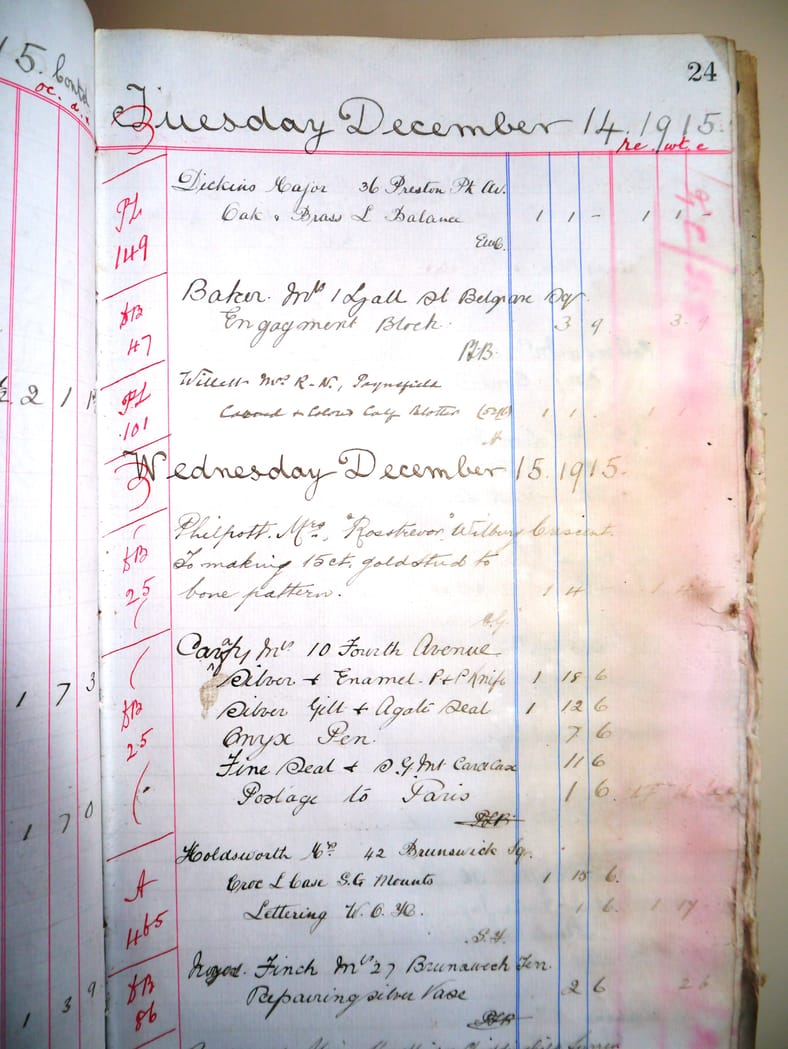 15. Contd
24
Tuesday December 14. 1915.
Dickins Major 36 Preston Pk Av.
Oak & Brass L Balance 1 1 - 1 1 -
PL
149
Baker. Mrs 1 Lyall St Belgrave Sq.
Engagment Block. 3 9 3 9
DB
47
Willett Mrs R. N.,
& Colored Calf Blotter 1 1 . 1 1
PL
101
2 1
Wednesday December 15. 1915.
Philpott. Mrs, "Rosstrevor" Wilbury Crescent.
To making 15ct. gold stud to
bone pattern. 1 4 -
DB
25
Mrs 10 Fourth Avenue
Silver & Enamel P & P Knife 1 18 6
Silver Gilt & Agate Seal 1 12 6
Onyx Pen. 7 6
Fine Seal & S. G. Mt Card Case 11 6
Postage to Paris 1 6.
DB
25
1 7 3
1 7 0
Holdsworth Mrs 42 Brunswick Sq.
Croc L Case S.G Mounts 1 15 6.
Lettering W. O. H. 1 6. 1 17 -
A
465
Finch Mrs 27 Brunswick Terr.
Repairing silver Vase 2 6 2 6
DB
86
1 3 9